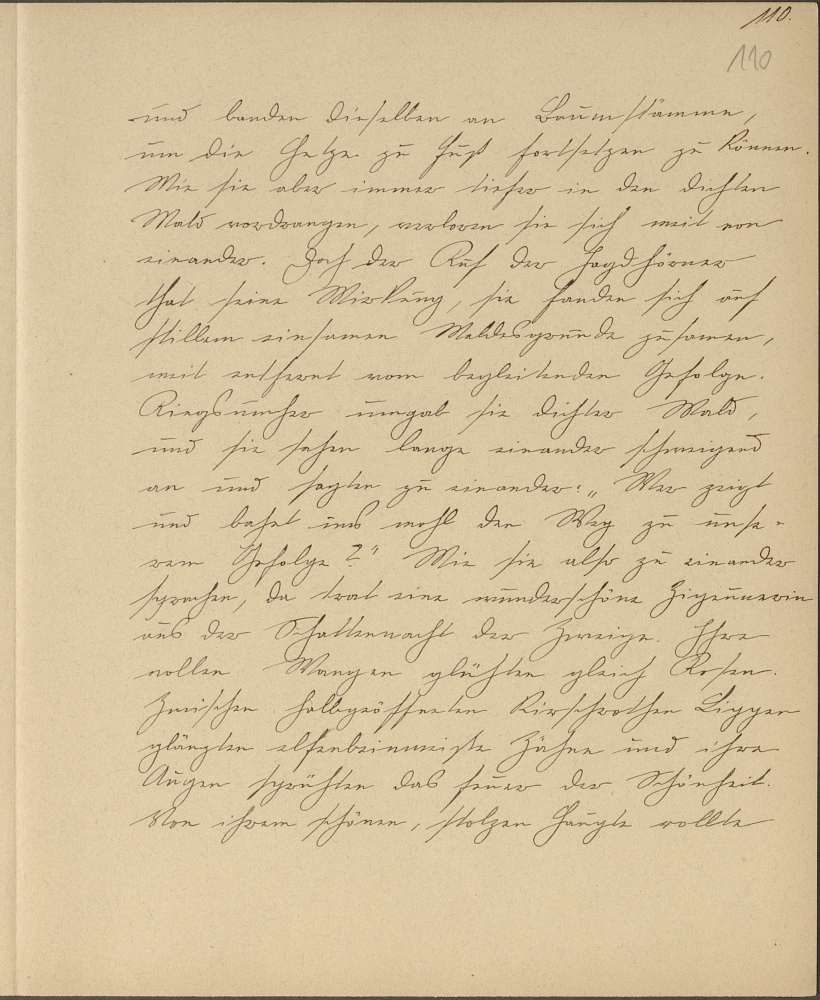 110.
110
und banden dieselben an Baumstämme,
um die Hetze zu Fuß fortsetzen zu können.
Wie sie aber immer tiefer in den dichten
Wald vordrangen, verloren sie sich weit von
einander. Doch der Ruf der Jagdhörner
that seine Wirkung, sie fanden sich auf
stillem einsamen Waldesgrunde zusamen,
weit entfernt vom begleitenden Gefolge.
Ringsumher umgab sie dichter Wald,
und sie sahen lange einander schweigend
an und sagten zu einander: „Wer zeigt
und bahnt uns wohl den Weg zu unse-
rem Gefolge?" Wie sie also zu einander
sprachen, da trat eine wunderschöne Zigeunerin
aus der Schattennacht der Zweige. Ihre
vollen Wangen glühten gleich Rosen.
Zwischen halbgeöffneten kirschrothen Lippen
glänzten elfenbeinweiße Zähne und ihre
Augen sprühten das Feuer der Schönheit.
Von ihrem schönen, stolzen Haupte rollte